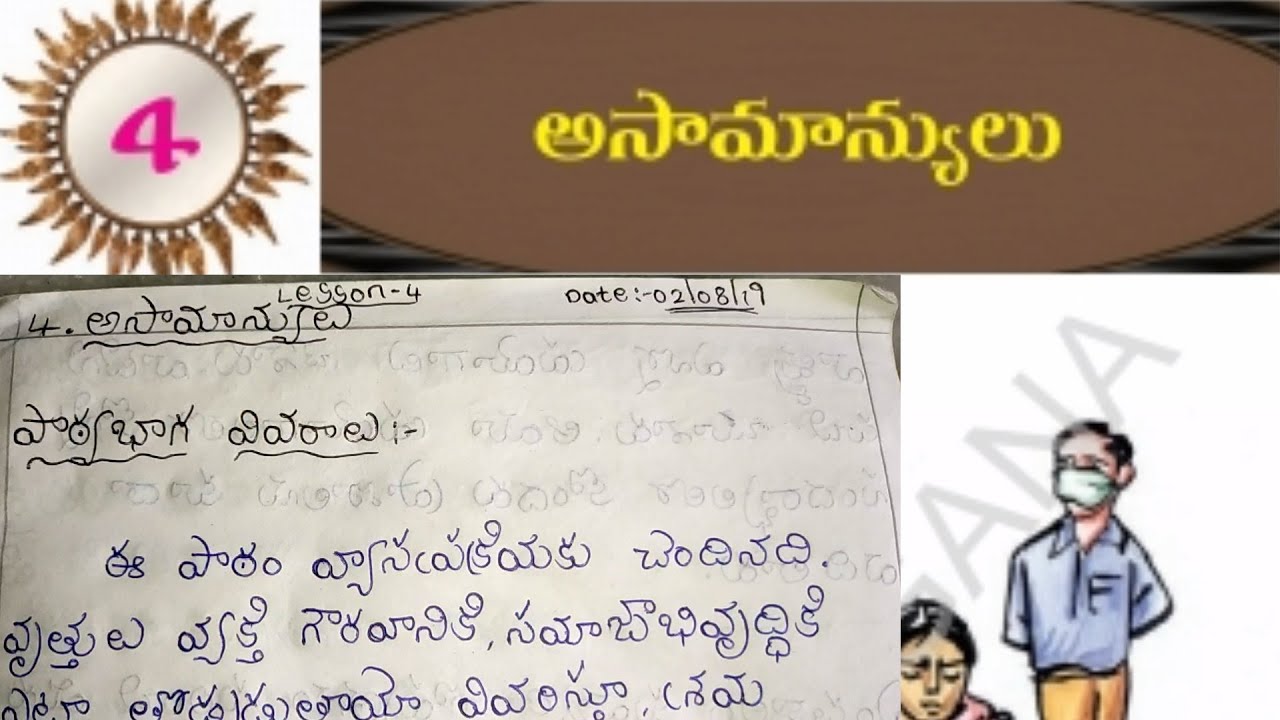 4
అసామాన్యులు
Lesson-4
Date:-02/08/19
4. అసామాన్యులు
పాఠ్యభాగ వివరాలు:-
ఈ పాఠం వ్యాసప్రక్రియకు చెందినది.
వృత్తులు వ్యక్తి గౌరవానికి, సమాజాభివృద్ధికి
ఎలా తోడ్పడుతాయో వివరిస్తూ, శ్రమ
GANA